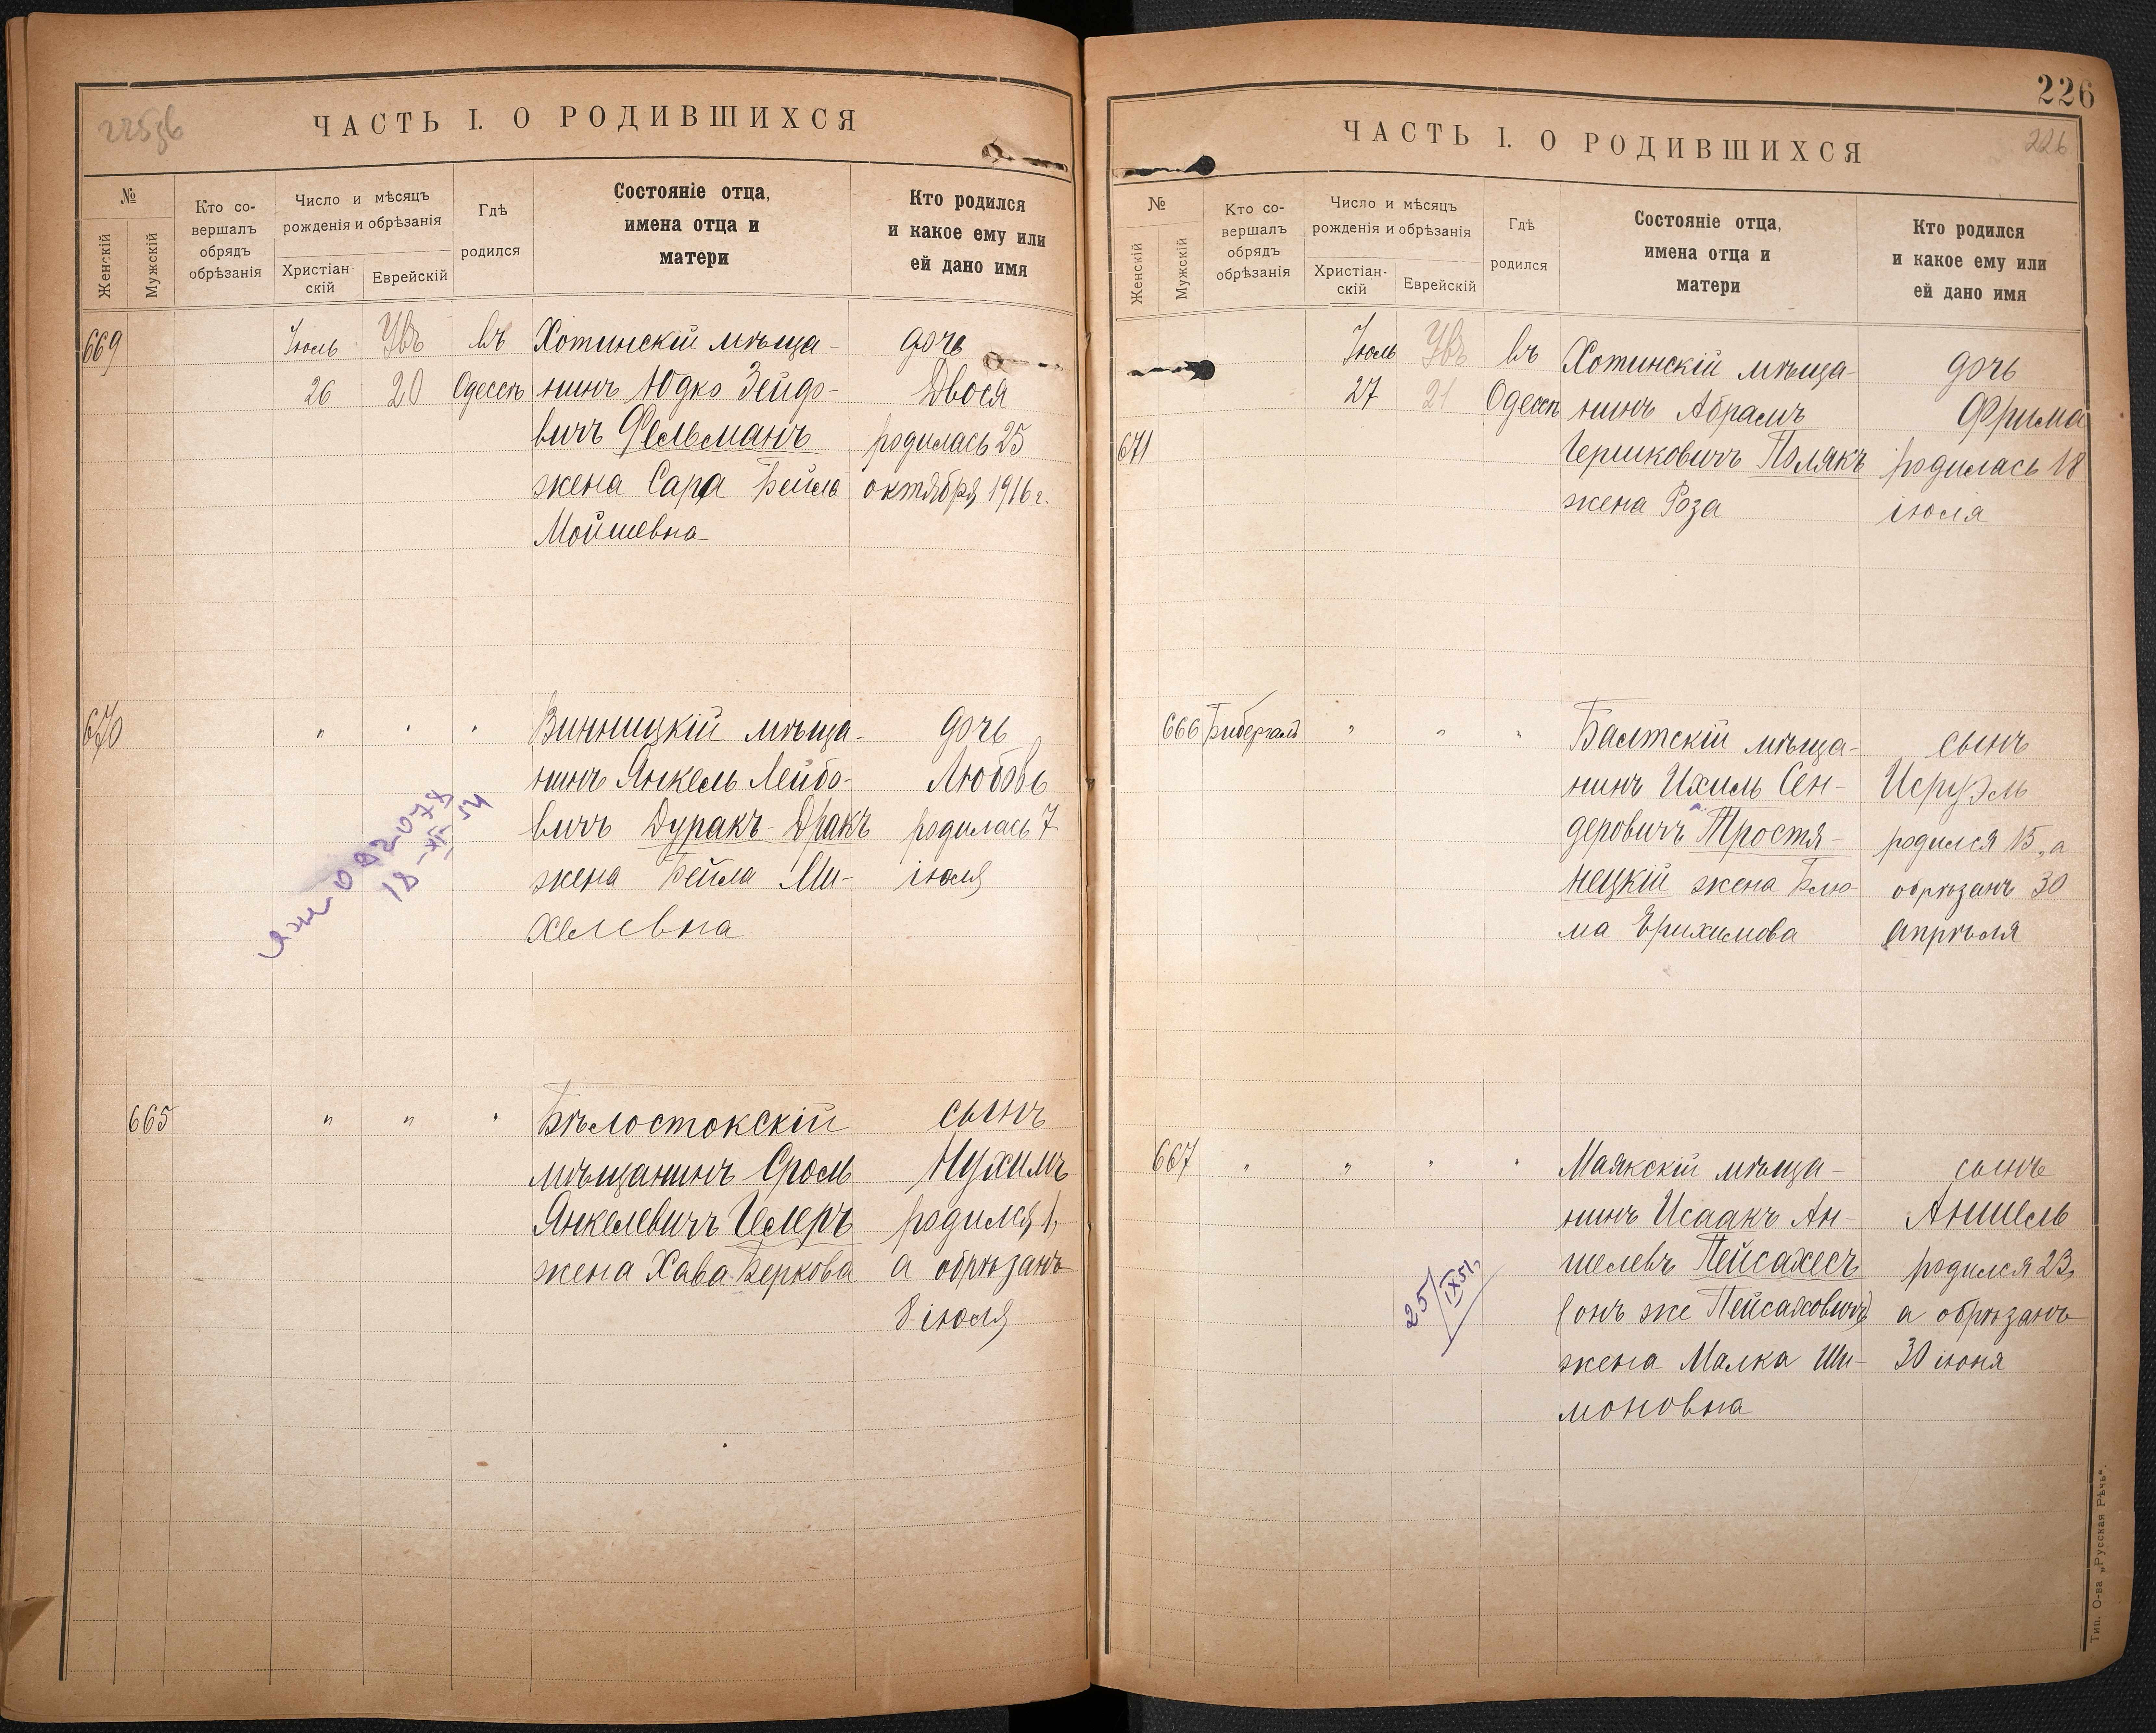 ЧАСТЬ I. О РОДИВШИХСЯ
№
Женскій
Мужскій
Кто со-
вершалъ
обрядъ
обрѣзанія
Число и мѣсяцъ
рожденія и обрѣзанія
Христіан-
скій
Еврейскій
Гдѣ
родился
Состояніе отца,
имена отца и
матери
Кто родился
и какое ему или
ей дано имя
669
Іюль
26
20
въ
Одессѣ
Хотинскій мѣща-
нинъ Юдко Зейдо-
вичъ Фельманъ
жена Сара Бейла
Мойшевна
дочь
Двося
родилась 25
октября 1916 г.
670
" " "
Винницкій мѣща-
нинъ Янкель Лейбо-
вичъ Дуракъ-Дракъ
жена Бейла Ми-
хелевна
дочь
Любовь
родилась 7
іюля
18-XII 54
665
" " "
Бѣлостокскій
мѣщанинъ Сроль
Янкелевичъ Целеръ
жена Хава Беркова
сынъ
Нухимъ
родился 1,
а обрѣзанъ
8 іюля
226
ЧАСТЬ I. О РОДИВШИХСЯ
226
№
Женскій
Мужскій
Кто со-
вершалъ
обрядъ
обрѣзанія
Число и мѣсяцъ
рожденія и обрѣзанія
Христіан-
скій
Еврейскій
Гдѣ
родился
Состояніе отца,
имена отца и
матери
Кто родился
и какое ему или
ей дано имя
671
Іюль
27
21
въ
Одессѣ
Хотинскій мѣща-
нинъ Абрамъ
Гершковичъ Полякъ
жена Роза
дочь
Фрима
родилась 18
іюля
666
Бибергалъ
" " "
Балтскій мѣща-
нинъ Ихиль Сен-
деровичъ Тростя-
нецкій жена Блю-
ма Ерихимова
сынъ
Исруэль
родился 15, а
обрѣзанъ 30
апрѣля
667
" " " "
Маякскій мѣща-
нинъ Исаакъ Ан-
шелевъ Пейсахесъ
(онъ же Пейсаховичъ)
жена Малка Ши-
моновна
сынъ
Аншель
родился 23,
а обрѣзанъ
30 іюня
25/IX51
Тип. О-ва „Русская Рѣчь".